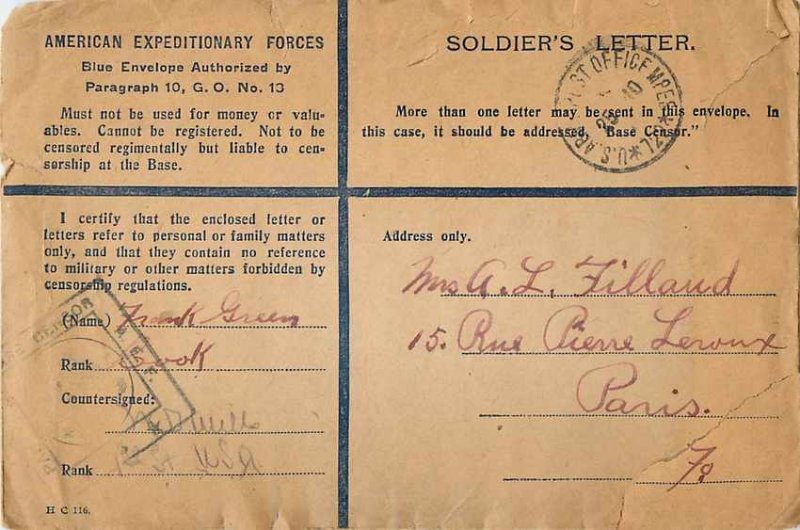 AMERICAN EXPEDITIONARY FORCES
Blue Envelope Authorized by
Paragraph 10, G. O. No. 13
Must not be used for money or valu-
ables. Cannot be registered. Not to be
censored regimentally but liable to cen-
sorship at the Base.
SOLDIER'S LETTER.
More than one letter may be sent in this envelope. In
this case, it should be addressed, "Base Censor."
POST OFFICE
I certify that the enclosed letter or
letters refer to personal or family matters
only, and that they contain no reference
to military or other matters forbidden by
censorship regulations.
(Name) Frank Green
Rank Cook
Countersigned:
Rank USA
H C 116.
CENSOR
A. E. F.
Address only.
Mrs A. L. Filland
15. Rue Pierre Leroux
Paris.